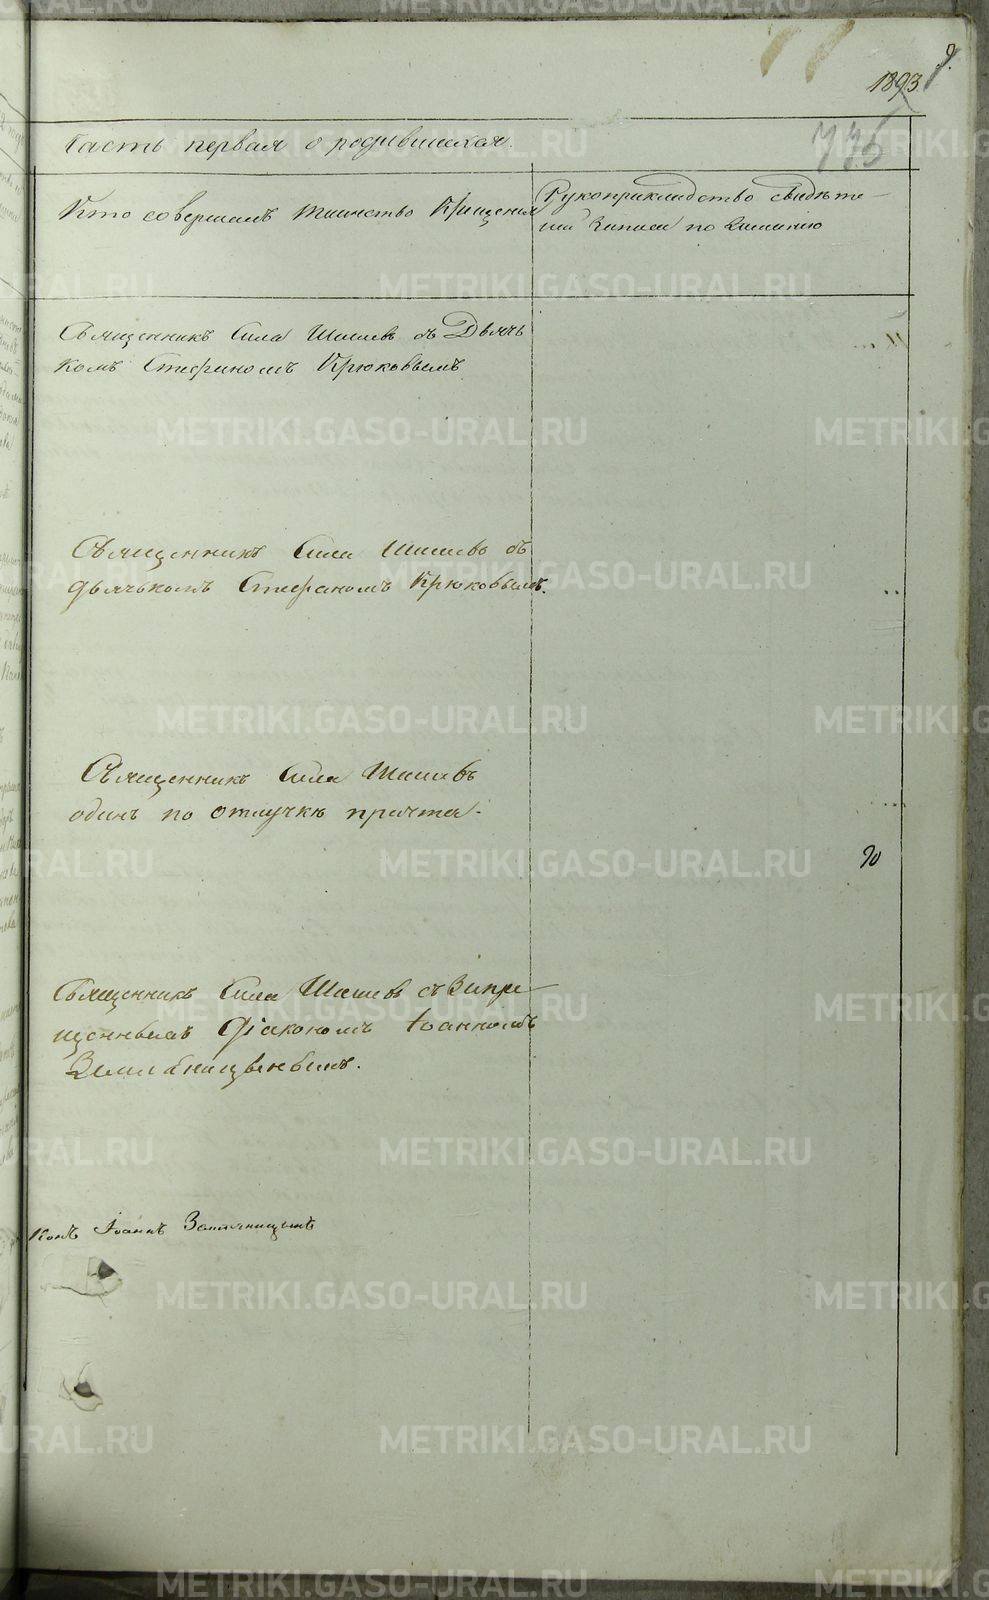 9.
1893
Часть первая о родившихся.
775
Кто совершалъ таинство Крещения
Рукоприкладство свидѣте-
лей Записи по желанию
Священникъ Сила Шишевъ съ Дьячь
комъ Стефаномъ Крюковымъ
Священникъ Сила Шишевъ съ
дьячькомъ Стефаномъ Крюковымъ.
Священникъ Сила Шишевъ
одинъ по отлучкѣ причта.
90
Священникъ Сила Шишевъ съ Запре-
щеннымъ Діакономъ Іоанномъ
конъ Іоаннъ Земляницынъ
METRIKI.GASO-URAL.RU